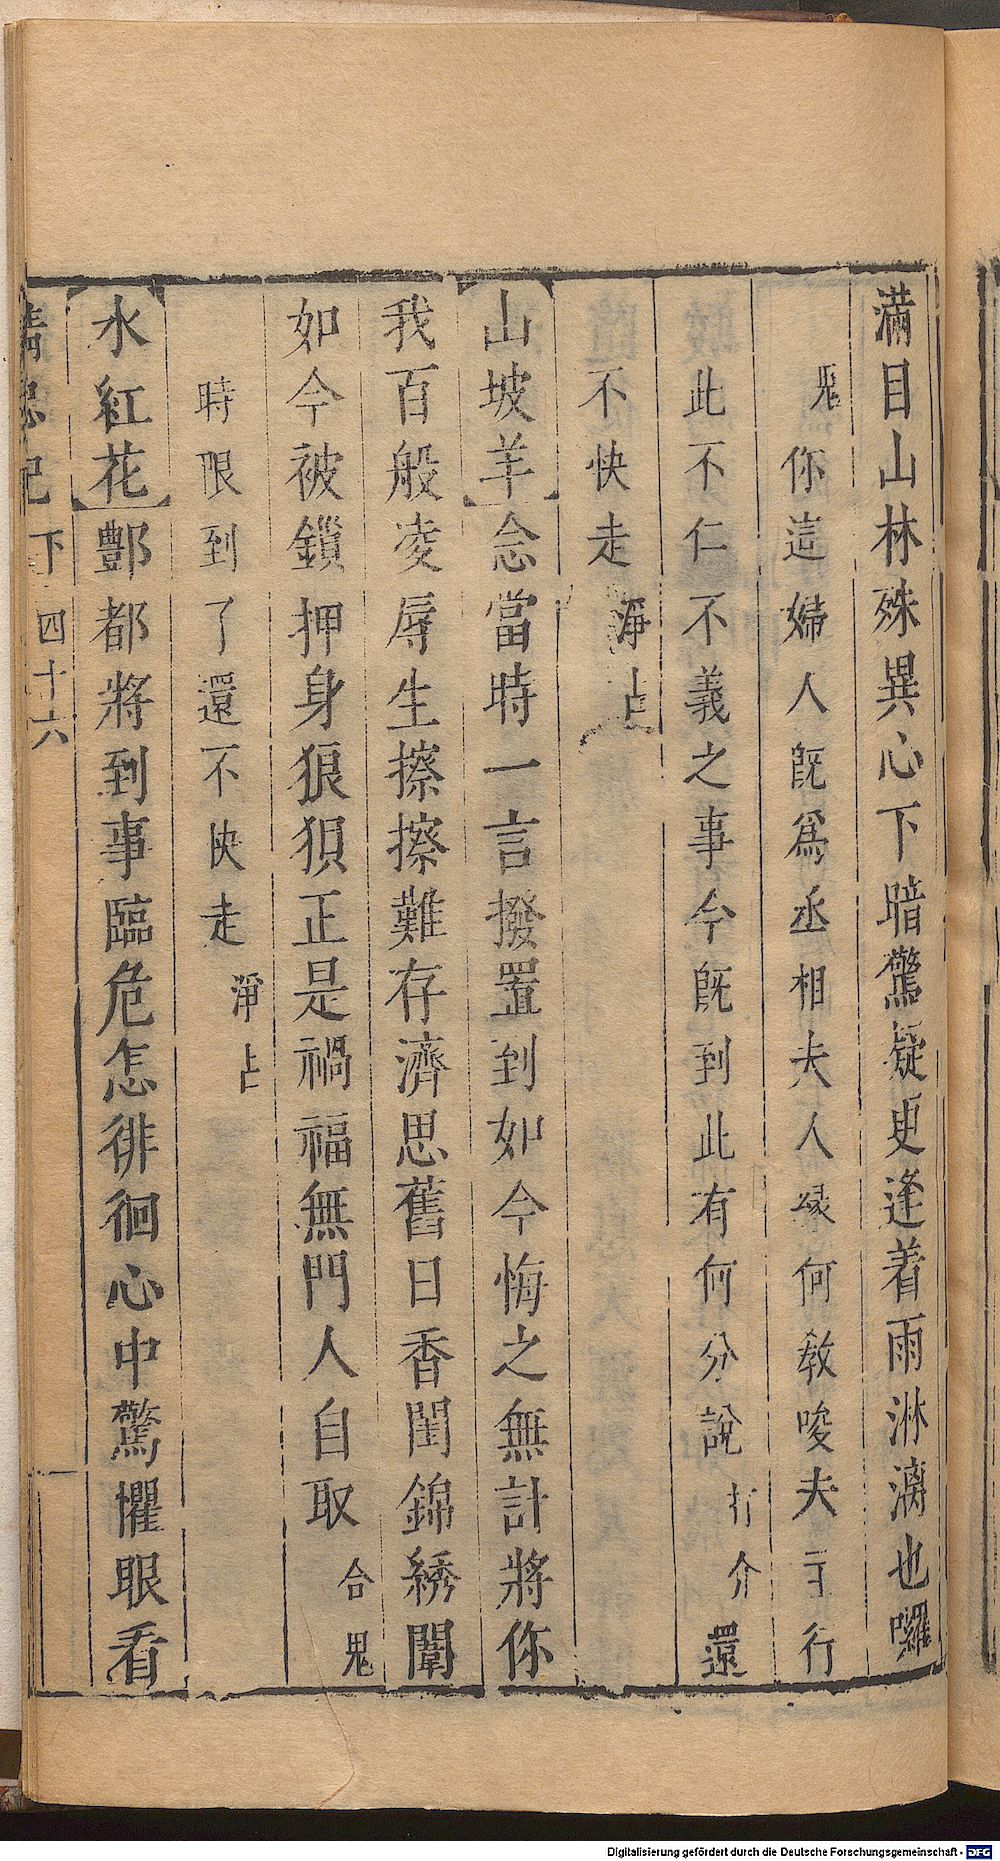 滿目山林殊異心下暗驚疑更逢着雨淋漓也囉
鬼 你這婦人既爲丞相夫人緣何教唆夫主行
此不仁不義之事今既到此有何分說 打介 還
不快走 淨上
山坡羊 念當時一言撥置到如今悔之無計將你
我百般凌辱生擦擦難存濟思舊日香閨錦綉闈
如今被鎖押身狼狽正是禍福無門人自取 合 鬼
時限到了還不快走 淨上
水紅花 酆都將到事臨危怎徘徊心中驚懼眼看
忠記 下 四十六
Digitalisierung gefördert durch die Deutsche Forschungsgemeinschaft - DFG